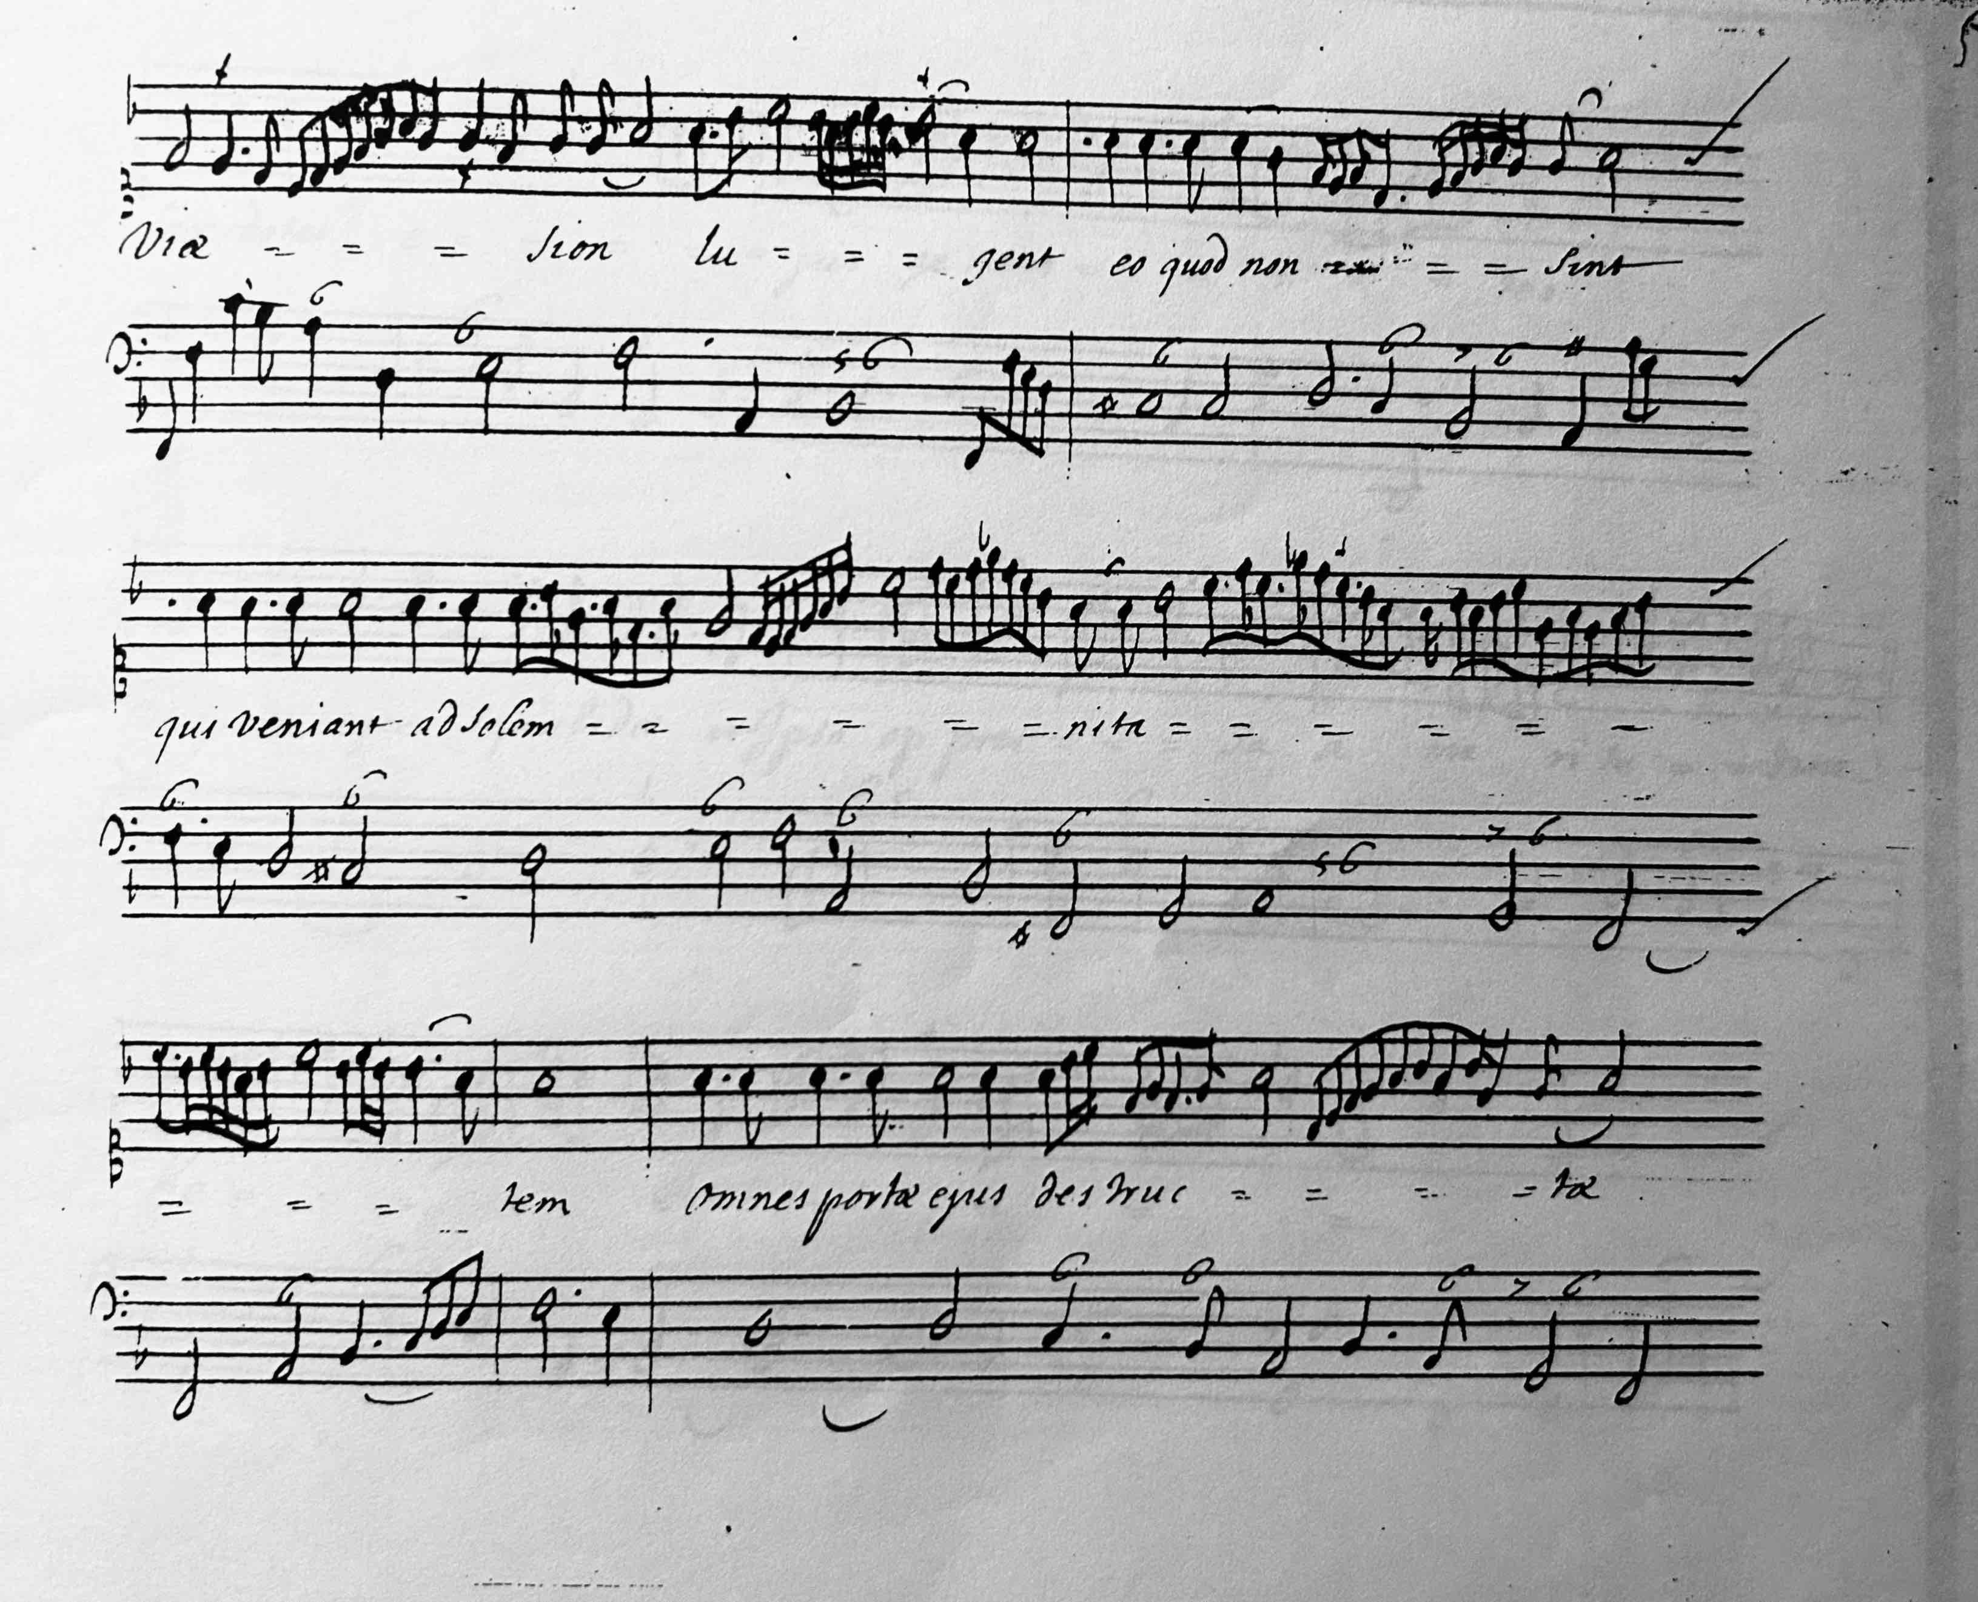 Viæ = = = Sion lu = = = gent eo quod non = = Sint
6 6 5 6 6 6 7 6
qui veniant ad Solem = = = = = = nita = = = = = =
6 6 6 6 6 5 6 7 6
= = = tem omnes portæ ejus destruc = = = = tæ
6 6 6 6 7 6